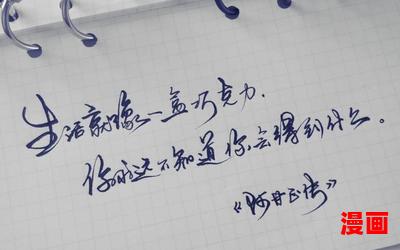 生活就像一盒巧克力.
你永远不知道你会得到什么。
《阿甘正传》
漫画